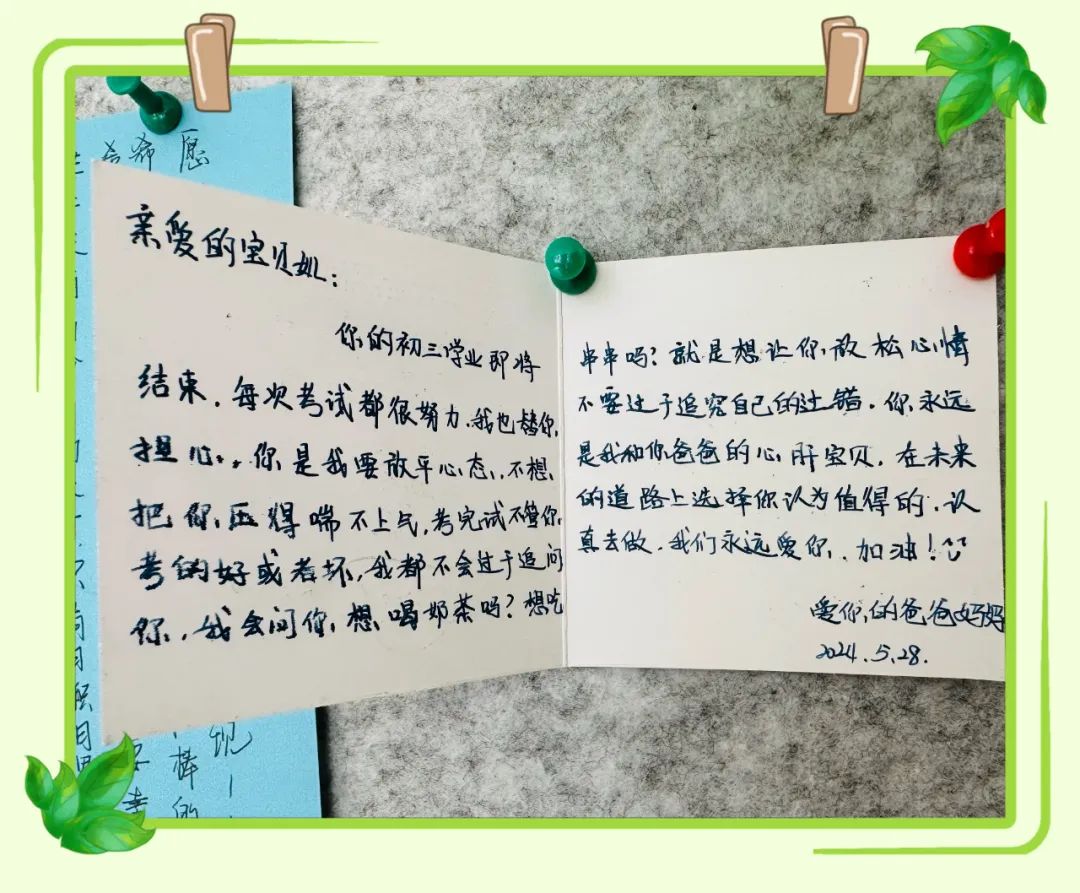 亲爱的宝贝姒:
你的初三学业即将
结束.每次考试都很努力.我也替你
担心..你是我要放平心态..不想
把你压得喘不上气,考完试不管你
考的好或者坏,我都不会过于追问
你.我会问你想喝奶茶吗?想吃
串串吗?就是想让你放松心情
不要过于追究自己的过错.你永远
是我和你爸爸的心肝宝贝.在未来
的道路上选择你认为值得的.认
真去做.我们永远爱你.加油!
爱你的爸爸妈妈
2024.5.28.
愿
希
现
棒
的